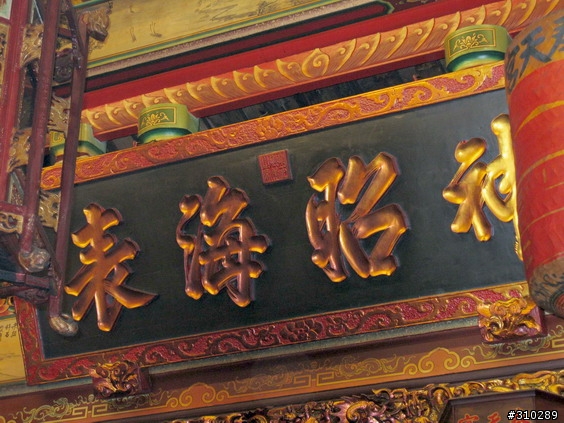 神昭海表
#310289